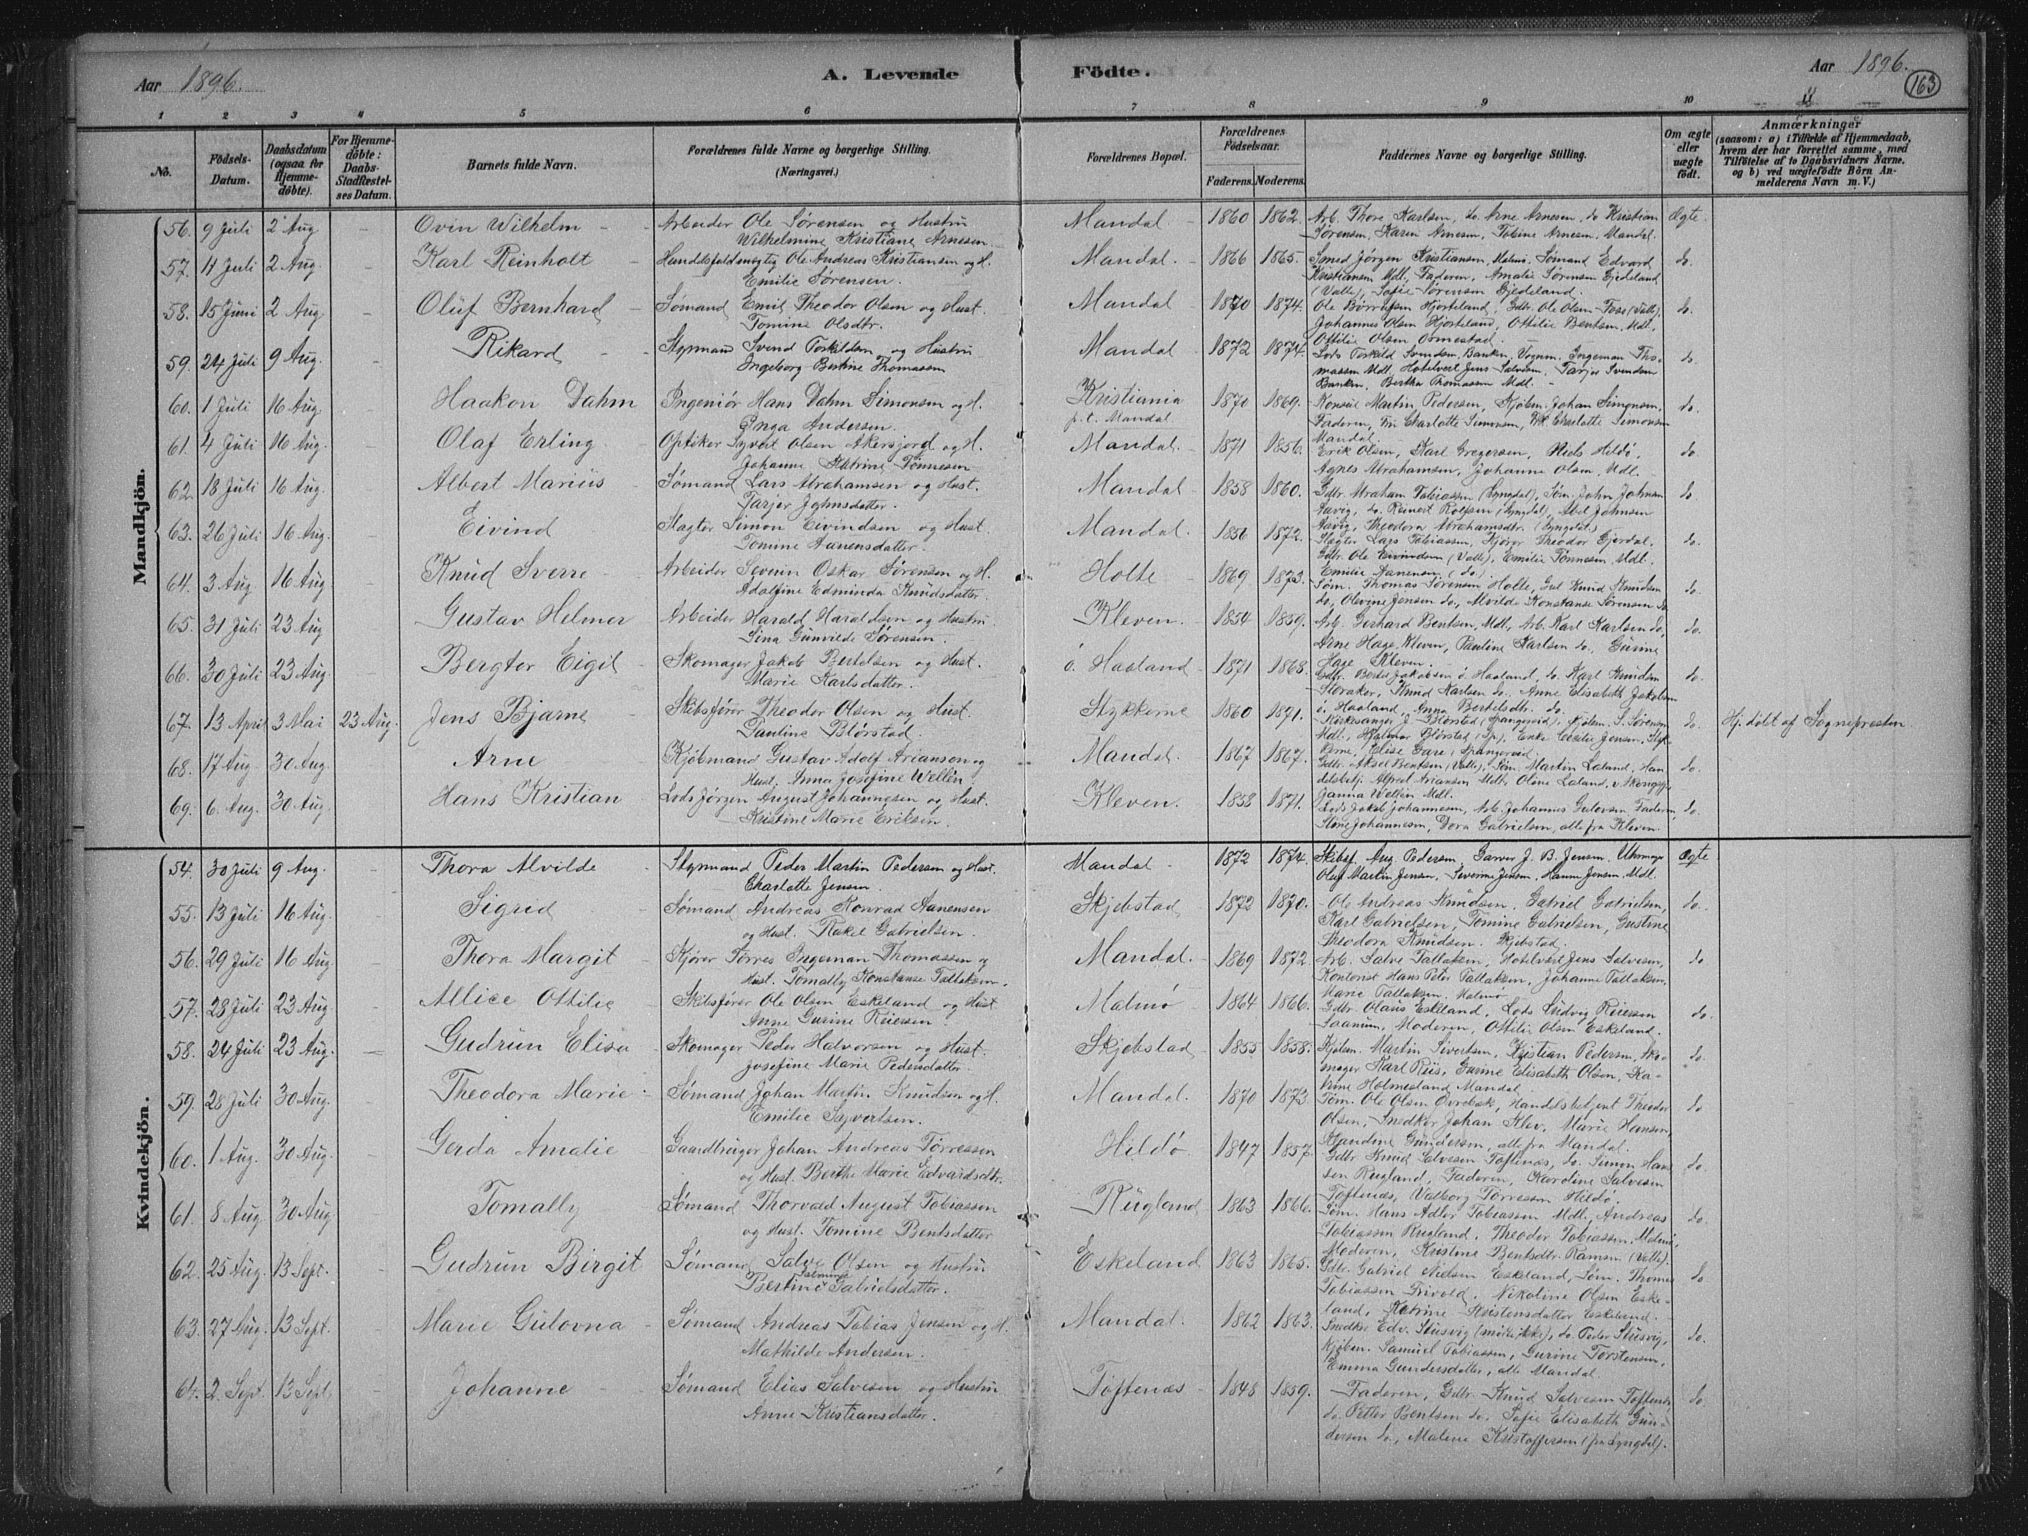 Aar 1896.
A. Levende Födte.
Aar 1896.
163
1 2 3 4 5 6 7 8 9 10 11
No.
Födsels-Datum.
Daabsdatum (ogsaa for Hjemmedöbte).
For Hjemmedöbte: Daabs-Stadfæstelses Datum.
Barnets fulde Navn.
Forældrenes fulde Navne og borgerlige Stilling. (Næringsvei.)
Forældrenes Bopæl.
Forældrenes Födselsaar.
Faderens. Moderens.
Faddernes Navne og borgerlige Stilling.
Om ægte eller uægte födt.
Anmærkninger (saasom: a) i Tilfælde af Hjemmedaab, hvem der har forrettet samme, med Tilföielse af to Daabsvidners Navne. og b) ved uægtefödte Börn Anmelderens Navn m. V.)
Mandkjön.
56. 9 Juli 2 Aug. Ovin Wilhelm Arbeider Ole Sørensen og Hustru Mandal 1860 1862 Arb. Thore Karlsen, do. Arne Arnesen, do Kristian Ægte
Wilhelmine Kristiane Arnesen. Sørensen, Karen Arnesen, Tobine Arnesen, Mandal.
57. 11 Juli 2 Aug. Karl Reinholt Handelsfuldmægtig Ole Andreas Kristiansen og H. Mandal. 1866 1865. Smed Jørgen Kristiansen, Malmö. Sømand Edvard do.
Emilie Sørensen. Kristiansen Mdl., Faderen, Amalie Sørensen Gjedeland
(Valle), Sofie Sørensen Gjedeland.
58. 15 Juni 2 Aug. Oluf Bernhard Sømand Emil Theodor Olsen og Hust. Mandal 1870 1874. Ole Børrufsen Hjorteland, Gdbr. Ole Olsen Foss (Valle), do.
Tomine Olsdtr. Johannes Olsen Hjorteland, Ottilie Bentsen, Mdl,
Ottilie Olsen Ormestad.
59. 24 Juli 9 Aug. Rikard Styrmand Svend Torkildsen og Hustru Mandal 1872 1874. Lods Torkild Svendsen, Banken, Vognm. Ingeman Tho- do.
Ingeborg Bertine Thomassen massen Mdl. Hotelvert Jens Salvesen, Tarjer Svendsen
Banken, Bertha Thomassen Mdl.
60. 1 Juli 16 Aug. Haakon Dahm Ingeniör Hans Dahm Simonsen og H. Kristiania 1870 1869. Konsul Martin Pedersen, Kjøbm. Johan Simonsen, do.
Inga Andersen. p.t. Mandal Faderen, Fru Charlotte Simonsen, Frk. Charlotte Simonsen
Mandal.
61. 4 Juli 16 Aug. Olaf Erling Optiker Syvert Olsen Akersjord og H. Mandal 1871 1856. Erik Olsen, Karl Gregersen, Niels Hildø, do.
Johanne Katrine Tønnesen Agnes Abrahamsen, Johanne Olsen, Mdl.
62. 18 Juli 16 Aug. Albert Marius Sømand Lars Abrahamsen og Hust. Mandal. 1858 1860. Gdbr. Abraham Tobiassen (Lyngdal), Søm. John Johnsen do.
Tarjer Johnsdatter Aavig, do. Reinert Rolfsen (Lyngdal), Abel Johnsen
Aavig, Theodora Abrahamsdtr. (Lyngdal.)
63. 26 Juli 16 Aug. Eivind Slagter Simon Eivindsen og Hust. Mandal. 1850 1872. Slagter Lars Tobiassen, Kjører Theodor Gjerdal, do.
Tomine Aanensdatter. Gdbr. Ole Eivindsen (Valle), Emilie Tønnesen Mdl.
Emilie Aanensen (do.)
64. 3 Aug 16 Aug Knud Sverre Arbeider Severin Oskar Sørensen og H. Holte 1869 1873. Søm. Thomas Sørensen Holte, Gut Knud Knudsen do.
Adolfine Edminda Knudsdatter. do, Olevine Jensen do., Alvilde Konstanse Sørensen do.
65. 31 Juli 23 Aug Gustav Helmer Arbeider Harald Haraldsen og Hustru Kleven. 1854 1859. Arb. Gerhard Bentsen, Mdl., Arb. Karl Karlsen do, do.
Sina Gunvilde Sørensen. Arne Hage Kleven, Pauline Karlsen do, Gunne
Hage Kleven.
66. 30 Juli 23 Aug. Bergtor Eigil Skomager Jakob Bertelsen og Hust. ö. Haaland 1871 1868. Gdbr. Bertel Jakobsen ö. Haaland, do. Karl Knudsen do.
Marie Karlsdatter. Storaker, Knud Karlsen do. Anne Elisabeth Jakobsen
ö. Haaland, Anna Bertelsdtr. do.
67. 13 April 3 Mai 23 Aug. Jens Bjarne Skibsfører Theodor Olsen og Hust. Stykkerne 1860 1871. Kirkesanger E. Blørstad (Spangereid), Kjøbm. S. Sørensen do. Hj. døbt af Sognepresten
Pauline Blørstad. Mdl., Hjalmar Blørstad (Sp.), Enke Cecilie Jensen, Styk-
kerne, Elise Gare, Spangereid.
68. 17 Aug 30 Aug. Arne Kjøbmand Gustav Adolf Arianson og Mandal. 1867 1867. Gdbr. Aksel Bentsen (Valle), Søm. Martin Laland, Han- do.
Hust. Anna Josefine Wellin delsbetj. Alfred Ariansen Mdl., Oline Laland,
Janna Wellin Mdl.
69. 6. Aug. 30 Aug. Hans Kristian Lods Jørgen August Johannesen og Hust. Kleven. 1858 1871. Lods Jakob Johannesen, Arb. Johannes Gulovsen, Faderen, do.
Kristine Marie Eriksen. Stine Johannesen, Dora Gabrielsen, alle fra Kleven.
Kvindekjön.
54. 30 Juli 9 Aug. Thora Alvilde Styrmand Peder Martin Pedersen og Hust. Mandal 1872 1874. Skibsf. Aug. Pedersen, Garver J. B. Jensen, Uhrmager Ægte
Charlotte Jensen. Oluf Martin Jensen, Severine Jensen, Hanne Jensen Mdl.
55. 13 Juli 16 Aug. Sigrid Sømand Andreas Konrad Aanensen Skjebstad 1872 1870. Ole Andreas Knudsen, Gabriel Gabrielsen, do.
og Hust. Rakel Gabrielsen. Karl Gabrielsen, Tomine Gabrielsen, Gustine
Theodora Knudsen. Skjebstad.
56. 29 Juli 16 Aug. Thora Margit Kjører Tørres Ingeman Thomassen og Mandal. 1869 1872 Arb. Salve Tallaksen, Hotelvert Jens Salvesen, do
Hust. Tomally Konstanse Tallaksen. Kontorist Hans Peter Tallaksen, Johanne Tallaksen,
Marie Tallaksen. Malmö
57. 28 Juli 23 Aug. Allice Ottilie Skibsfører Ole Olsen Eskeland og Hust Malmö 1864 1866. Gdbr. Olaus Eskeland, Lods Ludvig Reiersen do.
Anne Gurine Reiersen. Saanum, Moderen, Ottilie Olsen Eskeland.
58. 24 Juli 23 Aug. Gudrun Elisa Skomager Peder Halvorsen og Hust. Skjebstad 1855 1858. Kjøbm. Martin Sivertsen, Kristian Pedersen, Sko- do.
Josefine Marie Pedersdatter. mager Karl Riis, Gurine Elisabeth Olsen, Ka-
trine Holmesland Mandal
59. 28 Juli 30 Aug. Theodora Marie Sømand Johan Martin Knudsen og H. Mandal. 1870 1873 Tøm. Ole Olsen Øvrebøk, Handelsbetjent Theodor do
Emilie Syvertsen. Olsen, Snedker Johan Klev, Marie Hansen,
Blandine Gundersen, alle fra Mandal.
60. 1 Aug. 30 Aug. Gerda Amalie Gaardbruger Johan Andreas Tørressen Hildø 1847 1857. Gdbr. Knud Salvesen Toftenæs, do. Simon Han- do.
og Hust. Berthe Marie Edvardsdtr. sen Rugland, Faderen, Karoline Salvesen
Toftenæs, Valborg Tørressen Hildø.
61. 8 Aug. 30 Aug Tomally Sømand Thorvald August Tobiassen Rugland 1863 1866. Søm. Hans Adler Tobiassen Mdl., Andreas do.
og Hust. Tomine Bentsdatter Tobiassen Rugland, Theodor Tobiassen, Malmö,
Moderen, Kristine Bentsdtr. Ramsø (Valle).
62. 25 Aug. 13 Sept. Gudrun Birgit Sømand Salve Olsen og Hustru Eskeland 1863 1865. Gdbr. Gabriel Nielsen Eskeland, Søm. Thomas do
Bertine Salmine Gabrielsdatter. Tobiassen Frivold, Nikoline Olsen Eske-
land, Katrine Kristensdatter Eskeland.
63. 27 Aug. 13 Sept. Marie Gulovna Sømand Andreas Tobias Jensen og H. Mandal. 1862 1863. Snedker Edv. Stusvig, do. Peder Stusvig, do.
Mathilde Andersen. Kjøbm. Samuel Tobiassen, Gurine Torstensen,
Emma Gundersdatter, alle Mandal.
64. 2. Sept. 13 Sept Johanne Sømand Elias Salvesen og Hustru Toftenæs 1848 1859. Faderen, Gdbr. Knud Salvesen Toftenæs, do.
Anne Kristiansdatter. do. Petter Bentsen do, Sofie Elisabeth Gun-
dersen do., Malene Kristoffersen (fra Lyngdal).